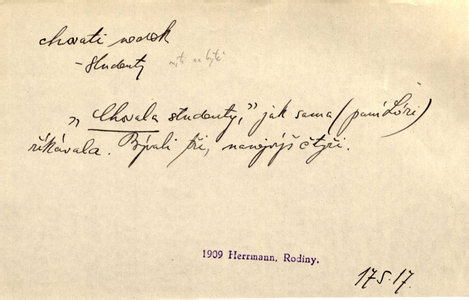 chovati
-studenty
„Chovala studenty,” jak sama (paní Lóri)
říkávala. Bývali tři, nanejvýš čtyři.
1909 Herrmann, Rodiny.
175.17.